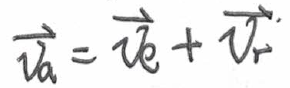 $\vec{v_a} = \vec{v_e} + \vec{v_r}$